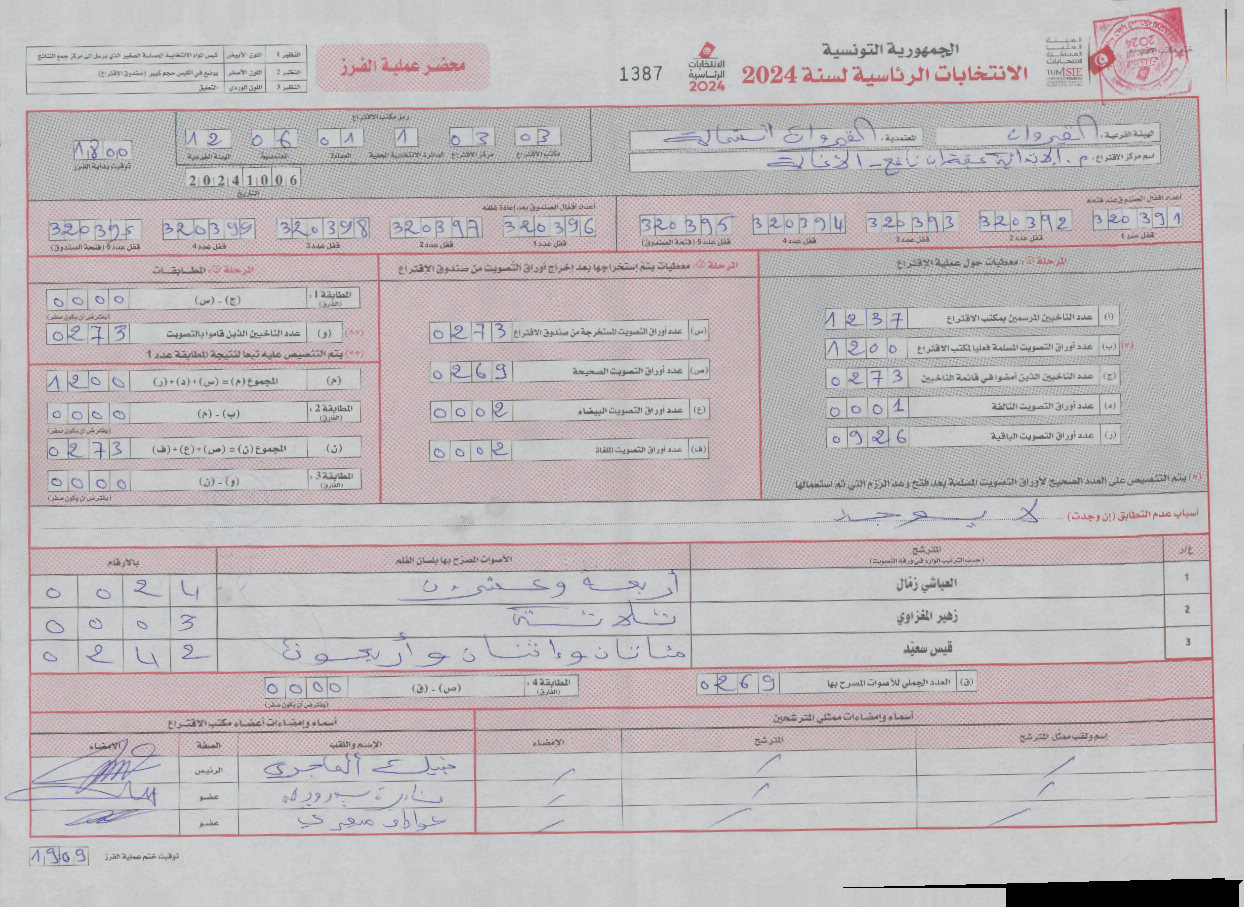 الجمهورية التونسية
الانتخابات الرئاسية لسنة 2024
الهيئة العليا المستقلة للانتخابات
TUNISIE
الانتخابات الرئاسية 2024
1387
محضر عملية الفرز
النظير 1 اللون الأبيض كيس المواد الانتخابية المسلمة الصغير الذي يرسل إلى مركز جمع النتائج
النظير 2 اللون الأصفر يوضع في الكيس حجم كبير (صندوق الاقتراع)
النظير 3 اللون الوردي التعليق
الهيئة الفرعية: القيروان المعتمدية: القيروان الشمالية
اسم مركز الاقتراع: م. الابتدائية عقبة بن نافع
رمز مكتب الاقتراع
03 03 1 01 06 12
مكتب الاقتراع مركز الاقتراع الدائرة الانتخابية المحلية العمادة المعتمدية الهيئة الفرعية
20241006
التاريخ
1800
توقيت بداية الفرز
أعداد أقفال الصندوق عند فتحه
320391 320392 320393 320394 320395
قفل عدد 1 قفل عدد 2 قفل عدد 3 قفل عدد 4 قفل عدد 5 (فتحة الصندوق)
أعداد أقفال الصندوق بعد إعادة غلقه
320396 320397 320398 320399 320395
قفل عدد 1 قفل عدد 2 قفل عدد 3 قفل عدد 4 قفل عدد 5 (فتحة الصندوق)
المرحلة ①: معطيات حول عملية الاقتراع
(أ) عدد الناخبين المرسمين بمكتب الاقتراع 1237
(*) (ب) عدد أوراق التصويت المسلمة فعليا لمكتب الاقتراع 1200
(ج) عدد الناخبين الذين أمضوا في قائمة الناخبين 0273
(د) عدد أوراق التصويت التالفة 0001
(ر) عدد أوراق التصويت الباقية 0926
(*) يتم التنصيص على العدد الصحيح لأوراق التصويت المسلمة بعد فتح وعد الرزم التي تم استعمالها
المرحلة ②: معطيات يتم استخراجها بعد إخراج أوراق التصويت من صندوق الاقتراع
(س) عدد أوراق التصويت المستخرجة من صندوق الاقتراع 0273
(ص) عدد أوراق التصويت الصحيحة 0269
(ع) عدد أوراق التصويت البيضاء 0002
(ف) عدد أوراق التصويت الملغاة 0002
المرحلة ③: المطابقات
المطابقة 1: (الفارق) (ج) - (س) 0000
(يفترض أن يكون صفر)
(**) (و) عدد الناخبين الذين قاموا بالتصويت 0273
(**) يتم التنصيص عليه تبعا لنتيجة المطابقة عدد 1
(م) المجموع (م) = (س) + (د) + (ر) 1200
المطابقة 2: (الفارق) (ب) - (م) 0000
(يفترض أن يكون صفر)
(ن) المجموع (ن) = (ص) + (ع) + (ف) 0273
المطابقة 3: (الفارق) (و) - (ن) 0000
(يفترض أن يكون صفر)
أسباب عدم التطابق (إن وجدت) لا يوجد
ع/ر المترشح الأصوات المصرح بها بلسان القلم بالأرقام
(حسب الترتيب الوارد في ورقة التصويت)
1 العياشي زمال أربعة وعشرون 0024
2 زهير المغزاوي ثلاثة 0003
3 قيس سعيد مئتان وإثنان وأربعون 0242
(ق) العدد الجملي للأصوات المصرح بها 0269
المطابقة 4: (الفارق) (ص) - (ق) 0000
(يفترض أن يكون صفر)
أسماء وإمضاءات ممثلي المترشحين
إسم ولقب ممثل المترشح المترشح الامضاء
أسماء وإمضاءات أعضاء مكتب الاقتراع
الإسم واللقب الصفة الامضاء
الرئيس
عضو
عضو
توقيت ختم عملية الفرز 1909